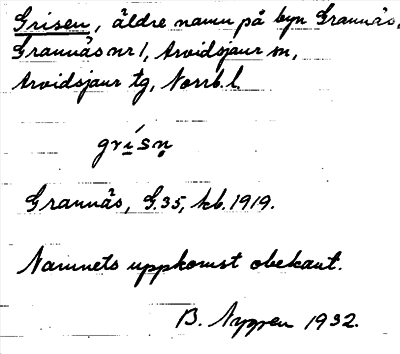 Grisen, äldre namn på byn Grannäs,
Grannäs nr 1, Arvidsjaur sn,
Arvidsjaur tg, Norrb. l.
grísn̥
Grannäs, G.35, kb. 1919.
Namnets uppkomst obekant.
B. Nyppen 1932.